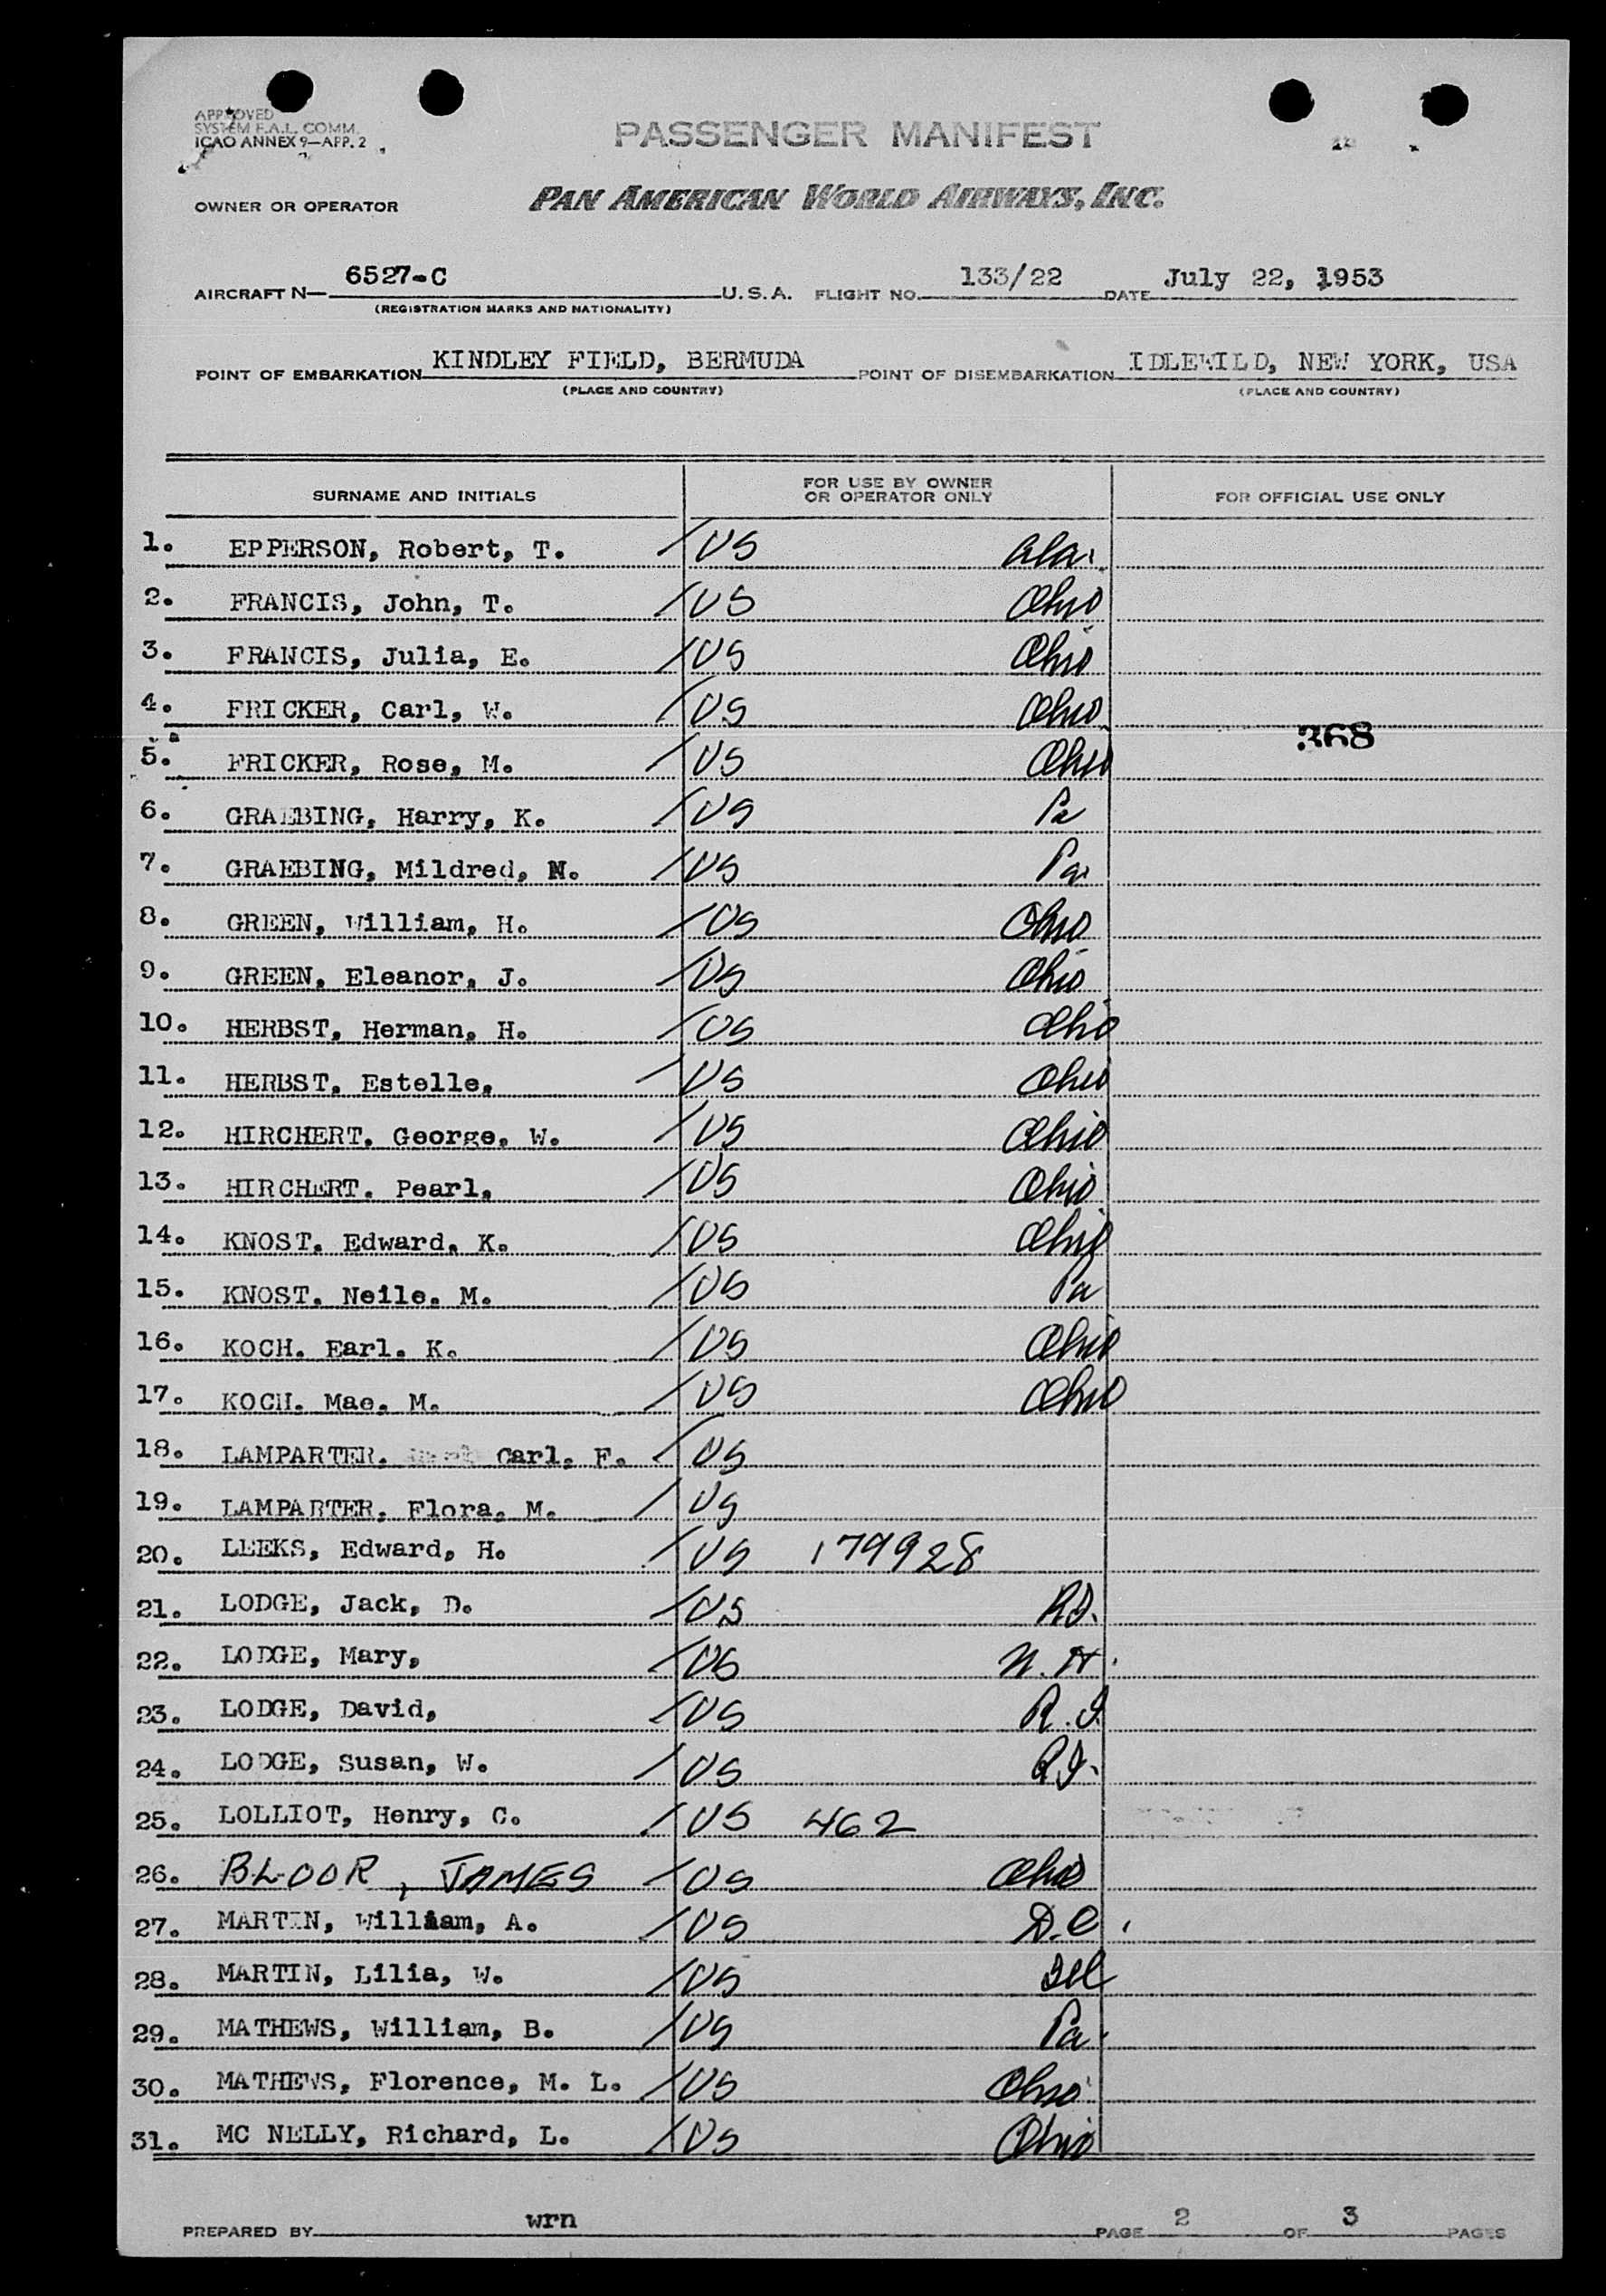 APPROVED
SYSTEM F.A.L. COMM.
ICAO ANNEX 9—APP. 2
PASSENGER MANIFEST
OWNER OR OPERATOR PAN AMERICAN WORLD AIRWAYS, INC.
AIRCRAFT N— 6527-C U.S.A. FLIGHT NO. 133/22 DATE July 22, 1953
(REGISTRATION MARKS AND NATIONALITY)
POINT OF EMBARKATION KINDLEY FIELD, BERMUDA POINT OF DISEMBARKATION IDLEWILD, NEW YORK, USA
(PLACE AND COUNTRY) (PLACE AND COUNTRY)
SURNAME AND INITIALS FOR USE BY OWNER OR OPERATOR ONLY FOR OFFICIAL USE ONLY
1. EPPERSON, Robert, T. / US Ala.
2. FRANCIS, John, T. / US Ohio
3. FRANCIS, Julia, E. / US Ohio
4. FRICKER, Carl, W. / US Ohio
368
5. FRICKER, Rose, M. / US Ohio
6. GRAEBING, Harry, K. / US Pa
7. GRAEBING, Mildred, N. / US Pa.
8. GREEN, William, H. / US Ohio
9. GREEN, Eleanor, J. / US Ohio
10. HERBST, Herman, H. / US Ohio
11. HERBST, Estelle, / US Ohio
12. HIRCHERT, George, W. / US Ohio
13. HIRCHERT, Pearl, / US Ohio
14. KNOST, Edward, K. / US Ohio
15. KNOST, Neile, M. / US Pa
16. KOCH, Earl, K. / US Ohio
17. KOCH, Mae, M. / US Ohio
18. LAMPARTER, Carl, F. / US
19. LAMPARTER, Flora, M. / US
20. LEEKS, Edward, H. / US 179928
21. LODGE, Jack, D. / US R.I.
22. LODGE, Mary, / US N.H.
23. LODGE, David, / US R.I.
24. LODGE, Susan, W. / US R.I.
25. LOLLIOT, Henry, C. / US 462
26. BLOOR, JAMES / US Ohio
27. MARTIN, William, A. / US D.C.
28. MARTIN, Lilia, W. / US Del
29. MATHEWS, William, B. / US Pa.
30. MATHEWS, Florence, M. L. / US Ohio
31. MC NELLY, Richard, L. / US Ohio
PREPARED BY wrn PAGE 2 OF 3 PAGES